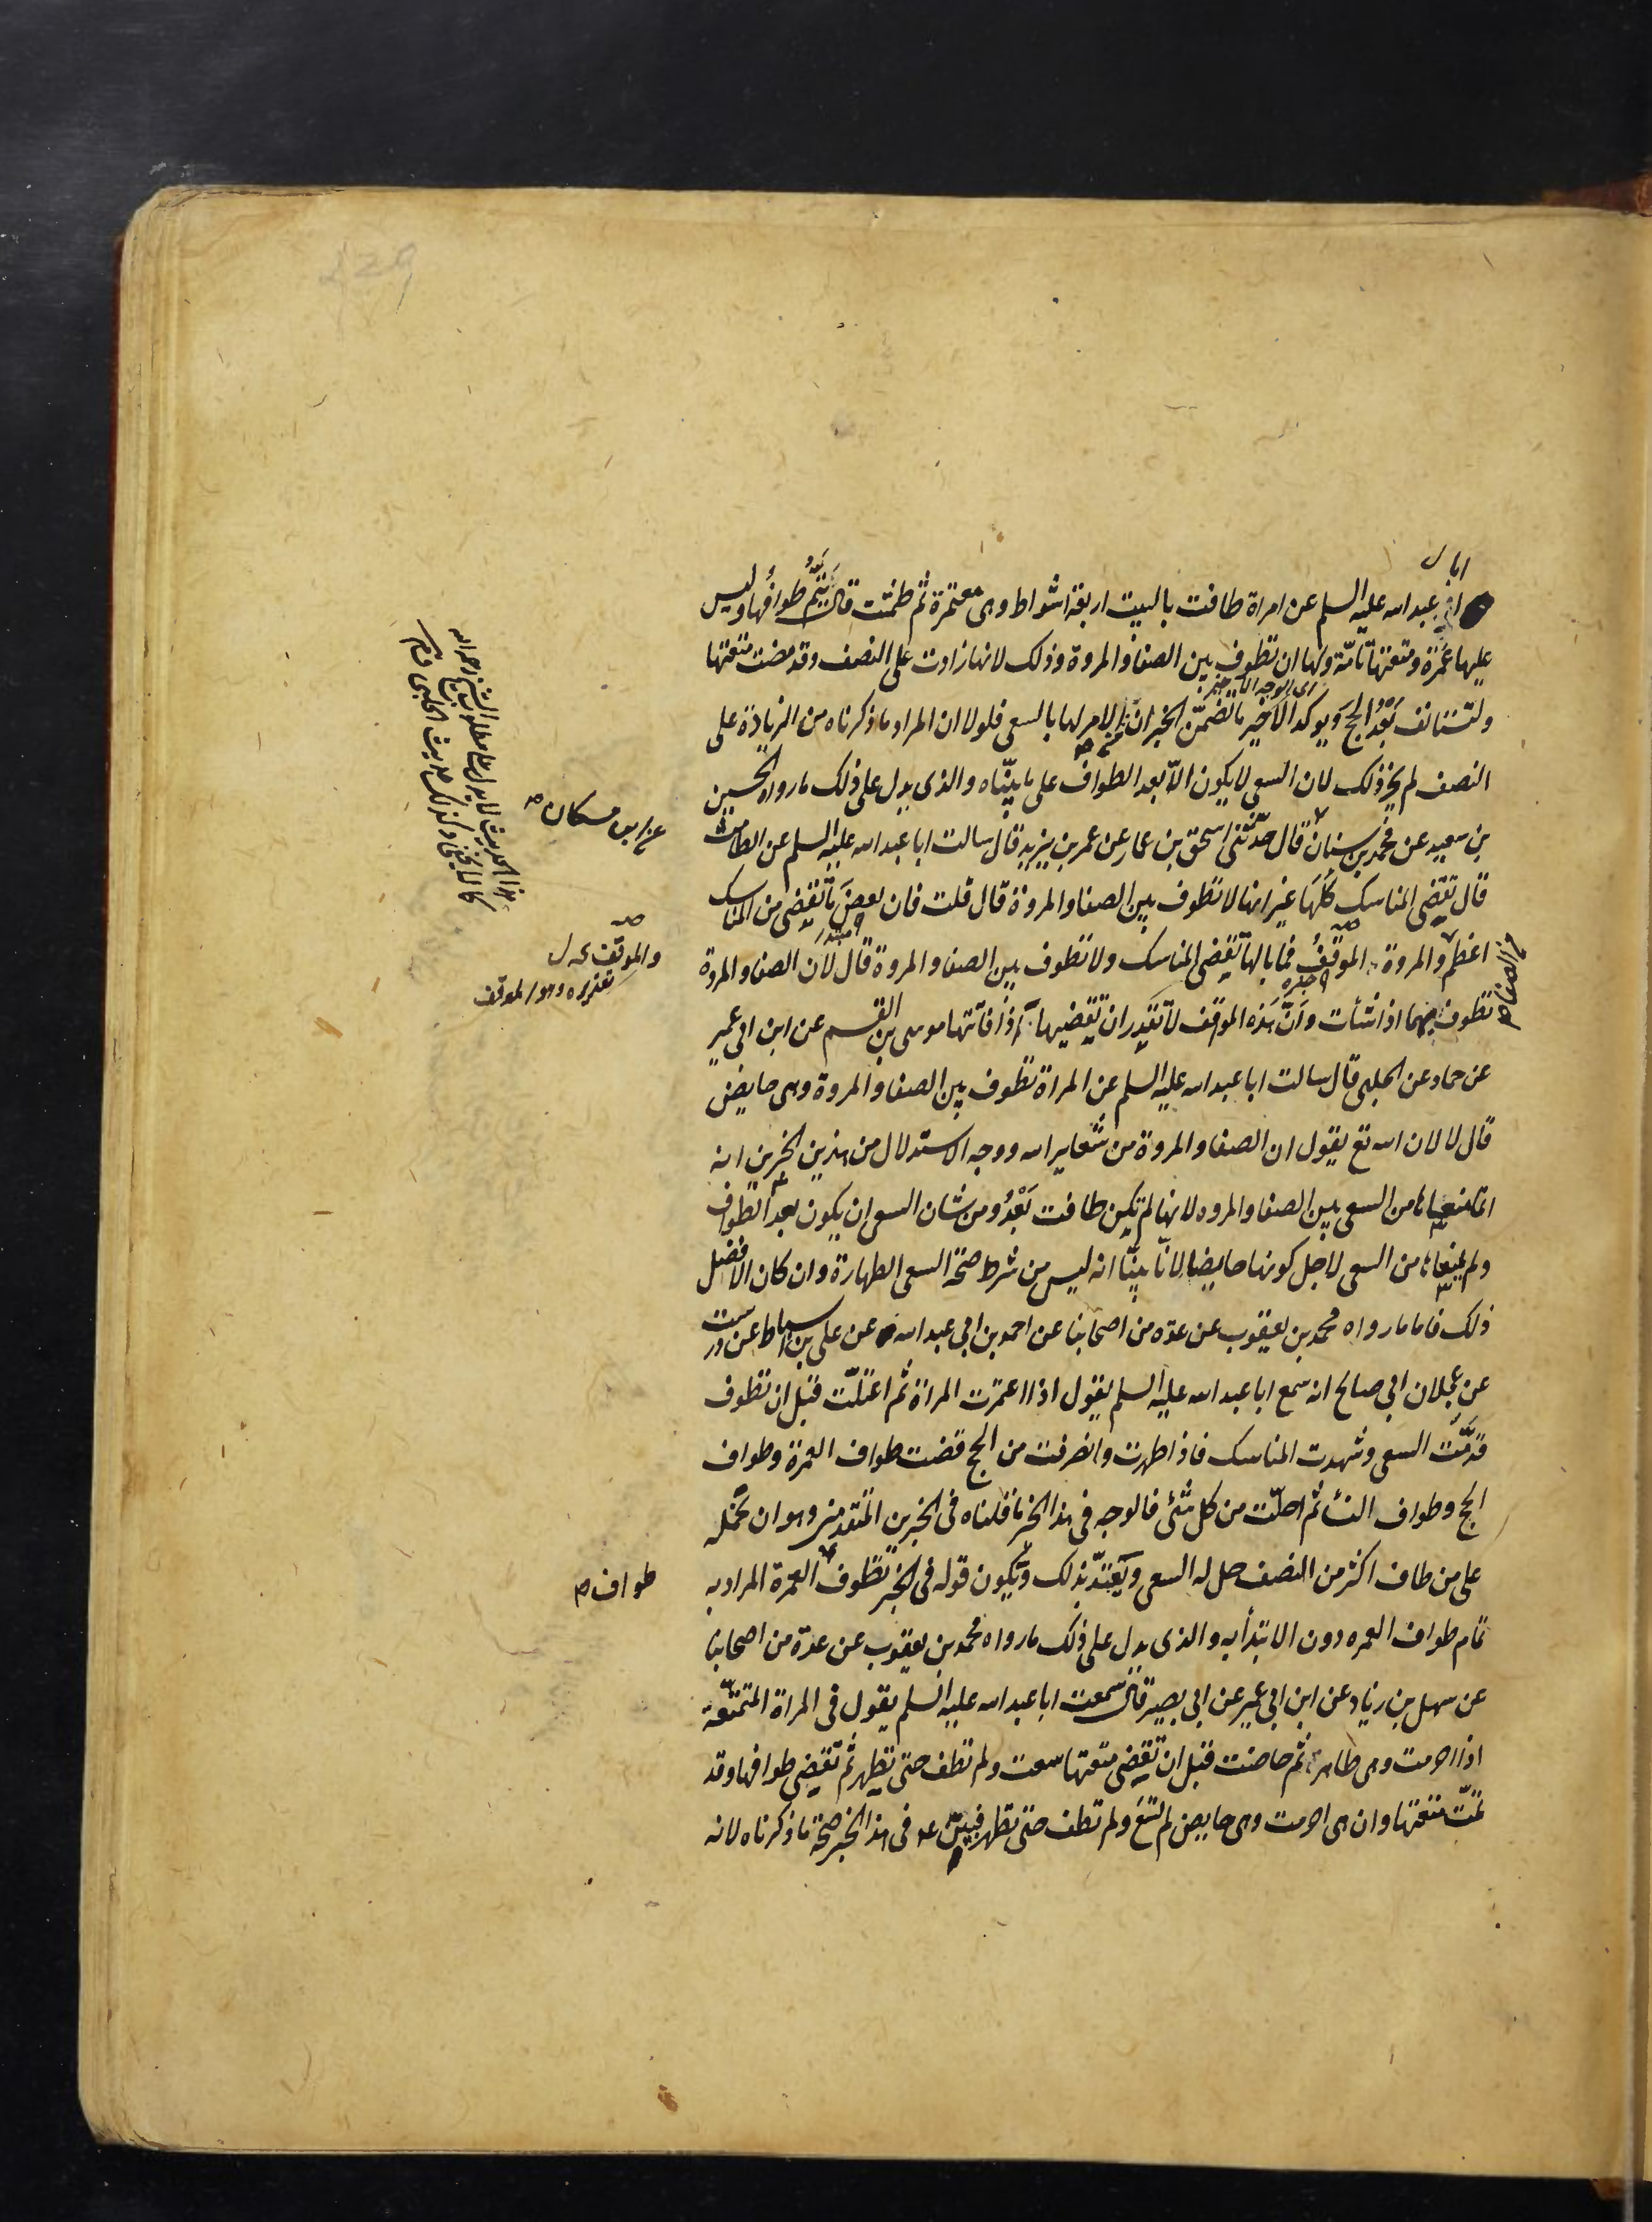 ابا ل
ابی عبد الله علیه السلم عن امراة طافت بالبیت اربعة اشواط وهی معتمرة ثم طمثت قال یتم طوافها ولیس
علیها عمرة ومتعتها تامّة ولها ان تطوف بین الصفا والمروة وذلک لانها زادت علی النصف وقد مضت متعتها
ولتستانف بعد الحج ویوکد الاخیر ما تضمن الخبران من الامر لها بالسعی فلولا ان المراد ما ذکرناه من الزیادة علی
النصف لم یجز ذلک لان السعی لا یکون الّا بعد الطواف علی ما بیّناه والذی یدل علی ذلک ما رواه الحسین
بن سعید عن محمد بن سنان قال حدثنی اسحق بن عمار عن عمر بن یزید قال سالت ابا عبد الله علیه السلم عن الطامث
قال تقضی المناسک کلها غیر انها لا تطوف بین الصفا والمروة قال قلت فان بعض ما تقضی من المناسک
اعظم والمروة الموقف فما بالها تقضی المناسک ولا تطوف بین الصفا والمروة قال لان الصفا والمروة
تطوف بهما اذا شأت وانّ هذه المواقف لا تقدر ان تقضیها اذا فاتتها موسی بن القسم عن ابن ابی عمیر
عن حماد عن الحلبی قال سالت ابا عبد الله علیه السلم عن المراة تطوف بین الصفا والمروة وهی حایض
قال لا لان الله تع یقول ان الصفا والمروة من شعایر الله ووجه الاستدلال من هذین الخبرین انه
انما منعها من السعی بین الصفا والمروه لانها لم تکن طافت بعد ومن شان السعی ان یکون بعد الطواف
ولم یمنعها من السعی لاجل کونها حایضا لانّا بیّنا انه لیس من شرط صحة السعی الطهارة وان کان الافضل
ذلک فاما ما رواه محمد بن یعقوب عن عده من اصحابنا عن احمد بن ابی عبد الله عن علی بن اسباط عن درست
عن عجلان ابی صالح انه سمع ابا عبد الله علیه السلم یقول اذا اعتمرت المراة ثم اعتلّت قبل ان تطوف
قدّمت السعی وشهدت المناسک فاذا طهرت وانصرفت من الحج قضت طواف العمرة وطواف
الحج وطواف النسأ ثم احلّت من کل شئ فالوجه فی هذا الخبر ما قلناه فی الخبرین المتقدمین وهو ان نحمله
علی من طاف اکثر من النصف حل له السعی ویعتدّ بذلک ویکون قوله فی الخبر تطوف العمرة المراد به
تمام طواف العمره دون الابتدأ به والذی یدل علی ذلک ما رواه محمد بن یعقوب عن عدة من اصحابنا
عن سهل بن زیاد عن ابن ابی عمیر عن ابی بصیر قال سمعت ابا عبد الله علیه السلم یقول فی المراة المتمتعة
اذا احرمت وهی طاهر ثم حاضت قبل ان تقضی متعتها سعت ولم تطف حتی تطهر ثم تقضی طوافها وقد
تمت متعتها وان هی احرمت وهی حایض لم تسع ولم تطف حتی تطهر فبیّن ع فی هذا الخبر صحة ما ذکرناه لانه
عن ابن مسکان صح
والموقف
تقدیره وهو الموقف
من الصفا
طواف